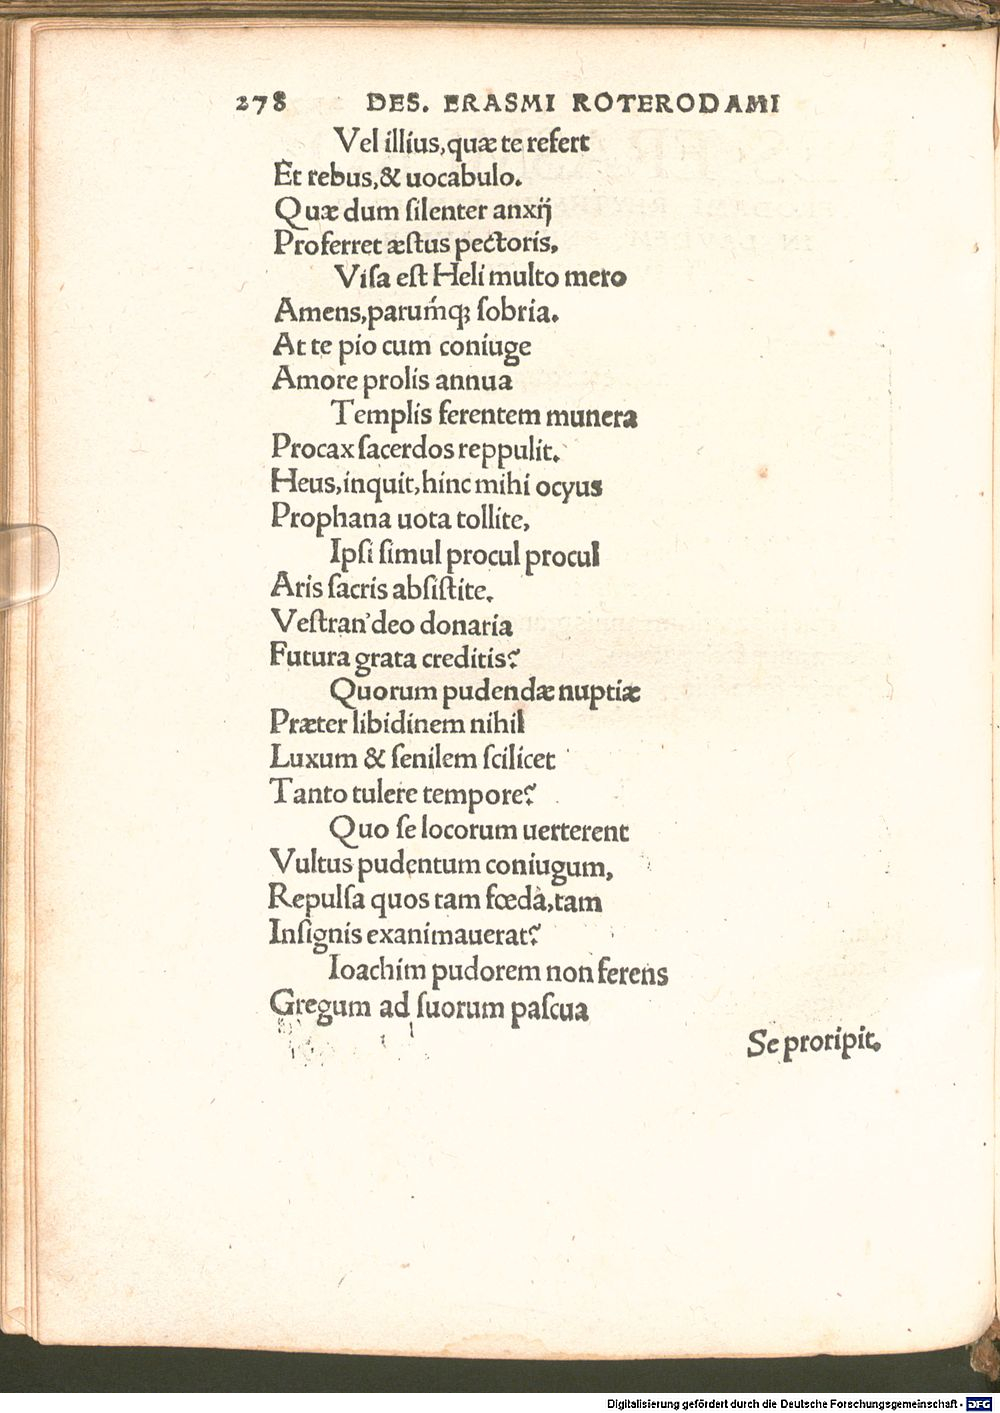 278 DES. ERASMI ROTERODAMI
Vel illius, quæ te refert
Et rebus, & uocabulo.
Quæ dum ſilenter anxij
Proferret æſtus pectoris,
Viſa eſt Heli multo mero
Amens, parumq́; ſobria.
At te pio cum coniuge
Amore prolis annua
Templis ferentem munera
Procax ſacerdos reppulit.
Heus, inquit, hinc mihi ocyus
Prophana uota tollite,
Ipſi ſimul procul procul
Aris ſacris abſiſtite.
Veſtran' deo donaria
Futura grata creditis?
Quorum pudendæ nuptiæ
Præter libidinem nihil
Luxum & ſenilem ſcilicet
Tanto tulere tempore?
Quo ſe locorum uerterent
Vultus pudentum coniugum,
Repulſa quos tam fœda, tam
Inſignis exanimauerat?
Ioachim pudorem non ferens
Gregum ad ſuorum paſcua
Se proripit.
Digitalisierung gefördert durch die Deutsche Forschungsgemeinschaft - DFG